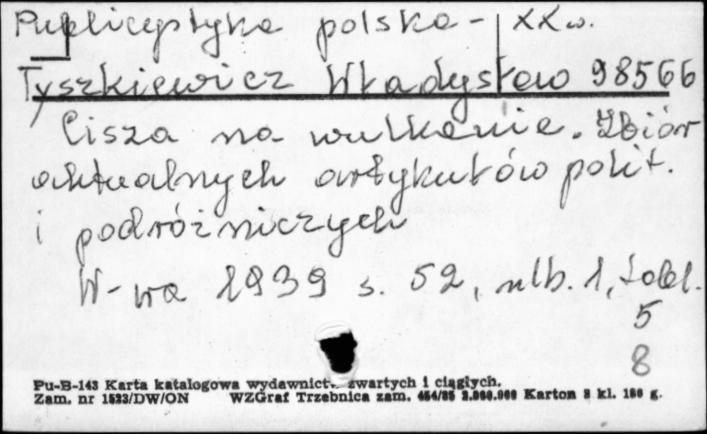 Publicystyka polska - XX w.
Tyszkiewicz Władysław 98566
Cisza na wulkanie. Zbiór
aktualnych artykułów polit.
i podróżniczych
W-wa 1939 s. 52, nlb. 1,
5
8
Pu-B-143 Karta katalogowa wydawnictw zwartych i ciągłych.
Zam. nr 1523/DW/ON WZGraf Trzebnica zam. Karton 3 kl. g.